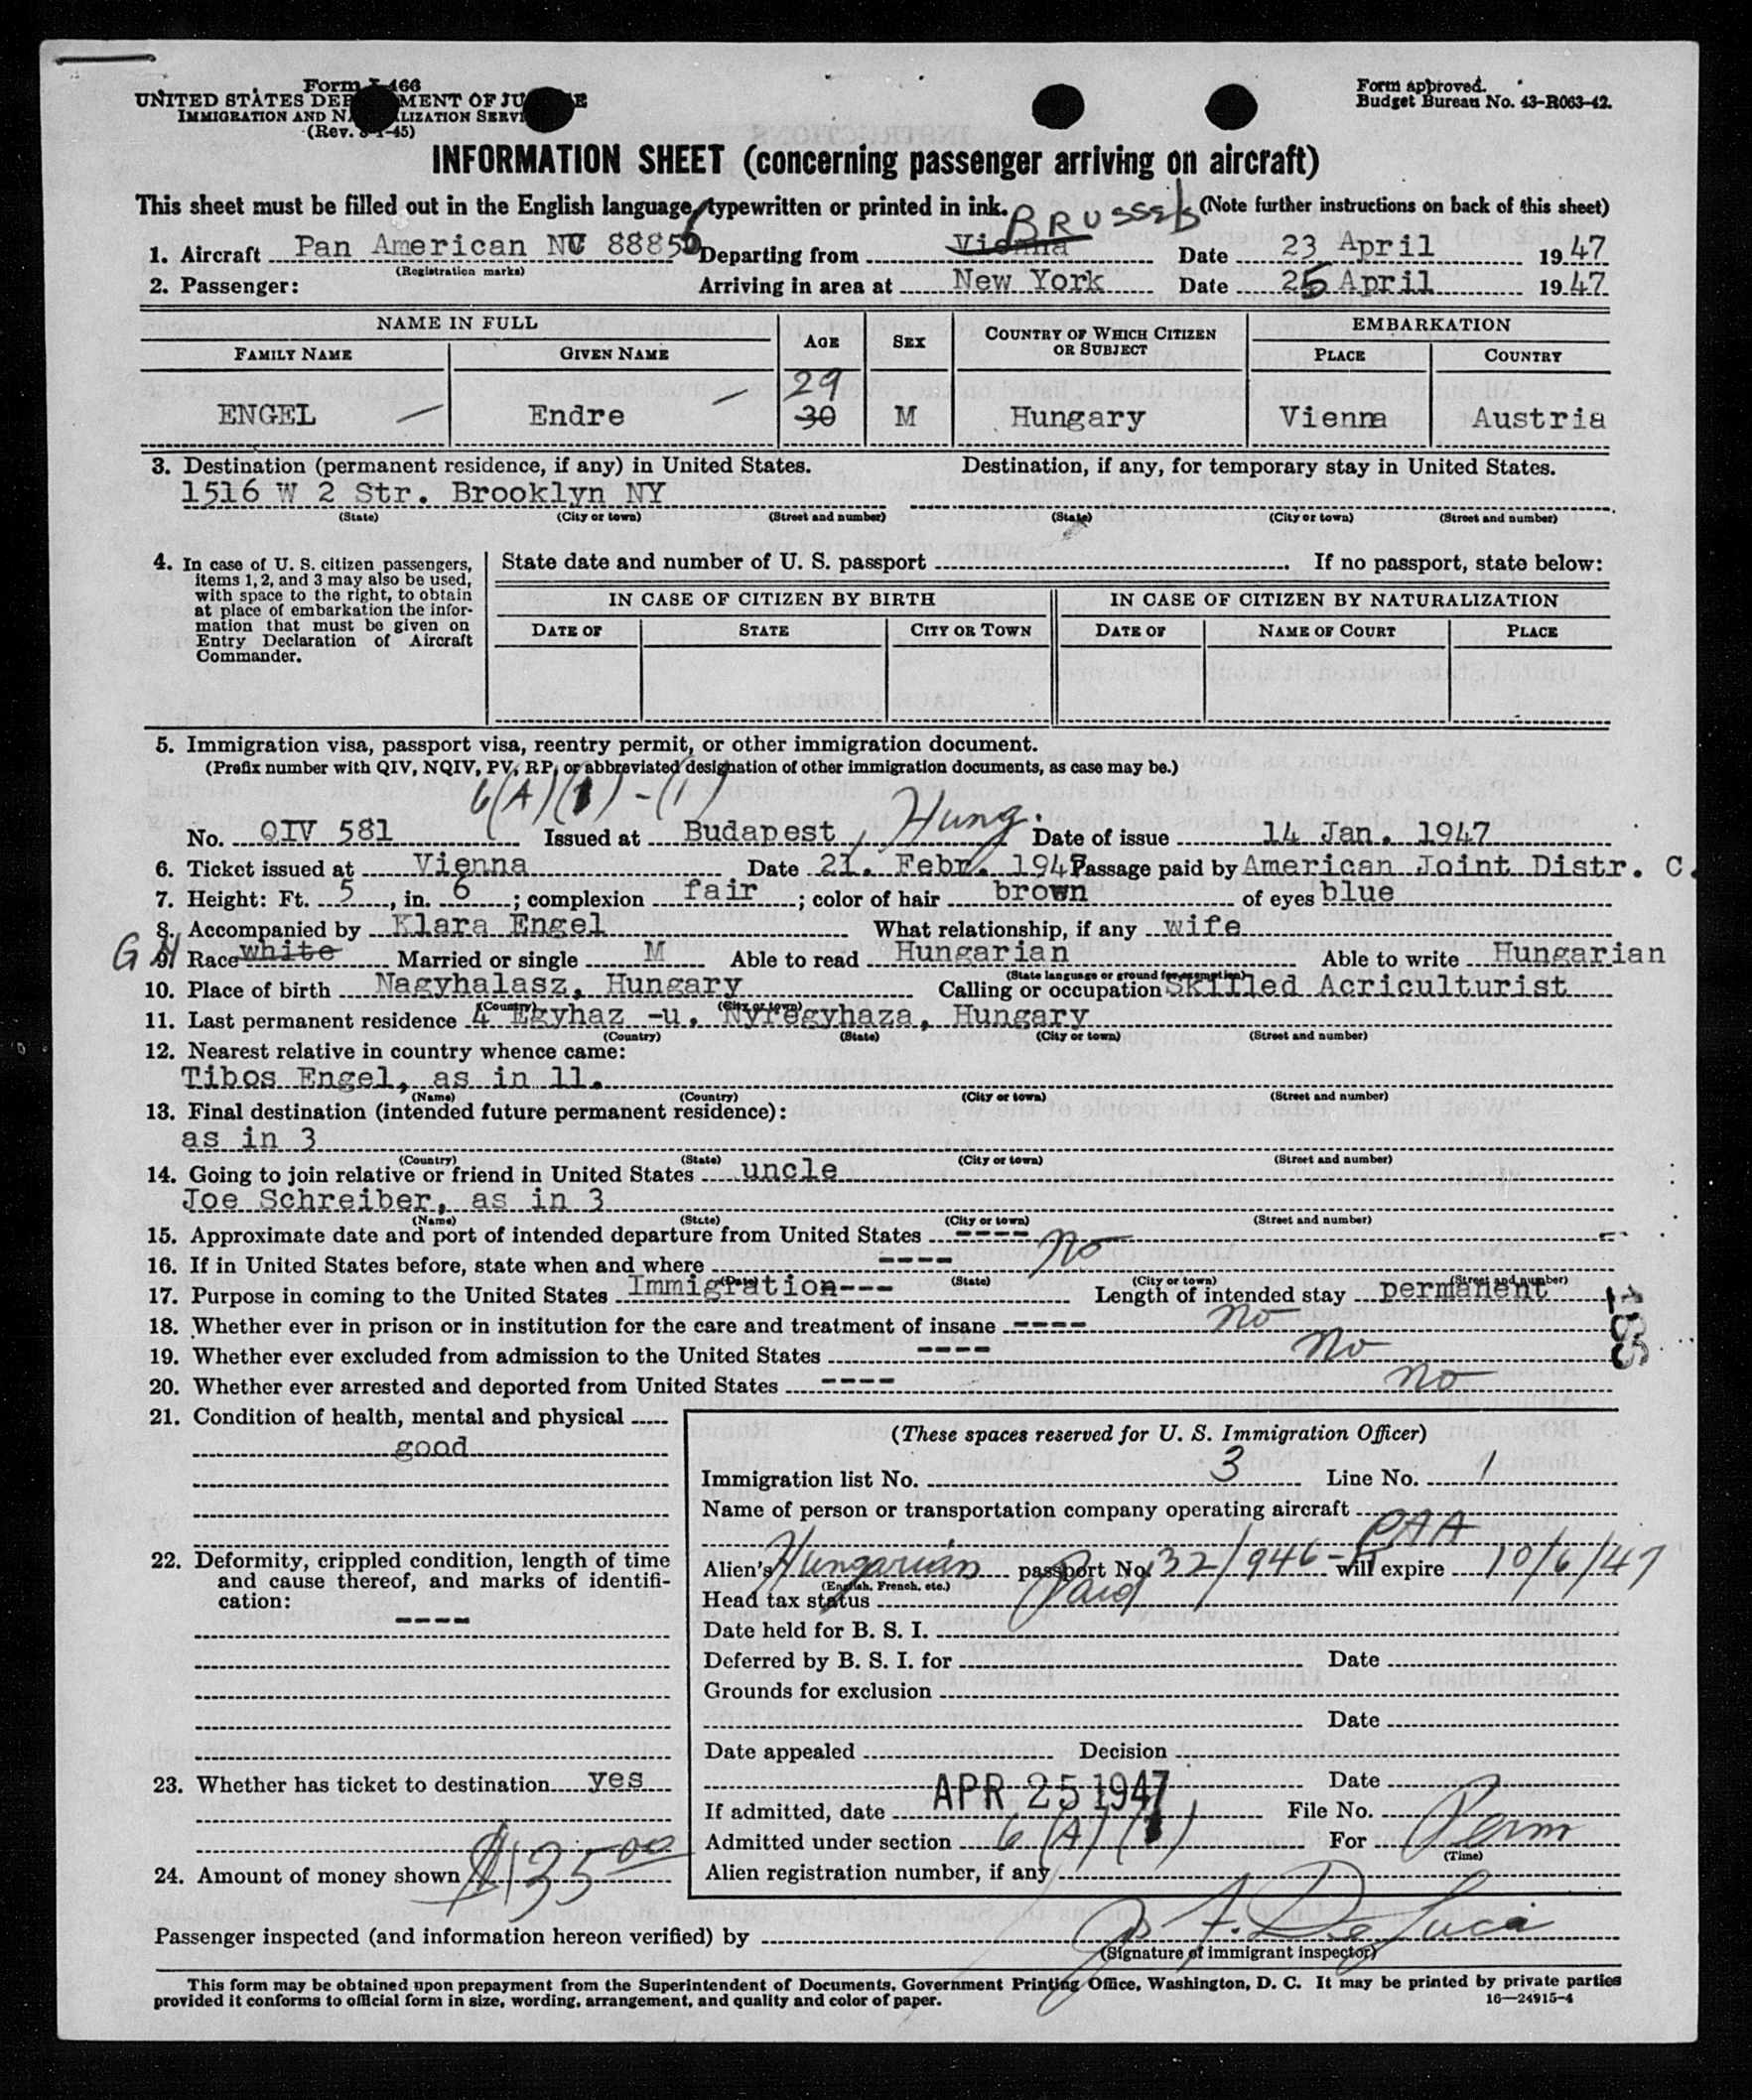 Form I-466
UNITED STATES DEPARTMENT OF JUSTICE
IMMIGRATION AND NATURALIZATION SERVICE
(Rev. 8-1-45)
Form approved.
Budget Bureau No. 43-R063-42.
INFORMATION SHEET (concerning passenger arriving on aircraft)
This sheet must be filled out in the English language, typewritten or printed in ink. (Note further instructions on back of this sheet)
BRUSSELS
1. Aircraft Pan American NC 88856 Departing from Vienna Date 23 April 1947
(Registration marks)
2. Passenger: Arriving in area at New York Date 25 April 1947
NAME IN FULL AGE SEX COUNTRY OF WHICH CITIZEN OR SUBJECT EMBARKATION
FAMILY NAME GIVEN NAME PLACE COUNTRY
29
ENGEL Endre 30 M Hungary Vienna Austria
3. Destination (permanent residence, if any) in United States. Destination, if any, for temporary stay in United States.
1516 W 2 Str. Brooklyn NY
(State) (City or town) (Street and number) (State) (City or town) (Street and number)
4. In case of U. S. citizen passengers, items 1, 2, and 3 may also be used, with space to the right, to obtain at place of embarkation the information that must be given on Entry Declaration of Aircraft Commander.
State date and number of U. S. passport If no passport, state below:
IN CASE OF CITIZEN BY BIRTH IN CASE OF CITIZEN BY NATURALIZATION
DATE OF STATE CITY OR TOWN DATE OF NAME OF COURT PLACE
5. Immigration visa, passport visa, reentry permit, or other immigration document.
(Prefix number with QIV, NQIV, PV, RP, or abbreviated designation of other immigration documents, as case may be.)
6(A)(1)-(1)
No. QIV 581 Issued at Budapest, Hung. Date of issue 14 Jan. 1947
6. Ticket issued at Vienna Date 21. Febr. 1947 Passage paid by American Joint Distr. C.
7. Height: Ft. 5, in. 6; complexion fair; color of hair brown of eyes blue
8. Accompanied by Klara Engel What relationship, if any wife
9. Race white Married or single M Able to read Hungarian Able to write Hungarian
(State language or ground for exemption)
10. Place of birth Nagyhalasz, Hungary Calling or occupation Skilled Acriculturist
(Country) (City or town)
11. Last permanent residence 4 Egyhaz -u. Nyregyhaza, Hungary
(Country) (State) (City or town) (Street and number)
12. Nearest relative in country whence came:
Tibos Engel, as in 11.
(Name) (Country) (City or town) (Street and number)
13. Final destination (intended future permanent residence):
as in 3
(Country) (State) (City or town) (Street and number)
14. Going to join relative or friend in United States uncle
Joe Schreiber, as in 3
(Name) (State) (City or town) (Street and number)
15. Approximate date and port of intended departure from United States ----
16. If in United States before, state when and where ---- No
(Date) (State) (City or town) (Street and number)
17. Purpose in coming to the United States Immigration--- Length of intended stay permanent
18. Whether ever in prison or in institution for the care and treatment of insane ---- No
19. Whether ever excluded from admission to the United States ---- No
20. Whether ever arrested and deported from United States ---- No
21. Condition of health, mental and physical
good
22. Deformity, crippled condition, length of time and cause thereof, and marks of identification:
----
23. Whether has ticket to destination yes
24. Amount of money shown $135.00
(These spaces reserved for U. S. Immigration Officer)
Immigration list No. 3 Line No. 1
Name of person or transportation company operating aircraft
PAA
Alien's Hungarian passport No. 32/946- will expire 10/6/47
(English, French, etc.)
Head tax status Paid
Date held for B. S. I.
Deferred by B. S. I. for Date
Grounds for exclusion
Date
Date appealed Decision
Date
If admitted, date APR 25 1947 File No.
Admitted under section 6(A)(1) For Perm
(Time)
Alien registration number, if any
Passenger inspected (and information hereon verified) by De Luca
(Signature of immigrant inspector)
This form may be obtained upon prepayment from the Superintendent of Documents, Government Printing Office, Washington, D. C. It may be printed by private parties
provided it conforms to official form in size, wording, arrangement, and quality and color of paper.
16—24915-4